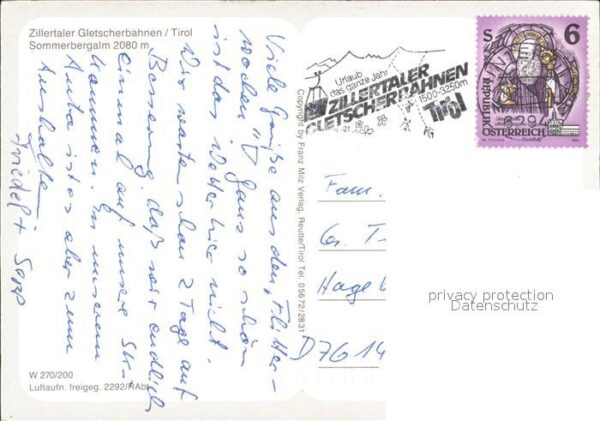 Zillertaler Gletscherbahnen / Tirol
Sommerbergalm 2080 m
Viele Grüße aus den „Flitter-
wochen". Ganz so schön
ist das Wetter hier nicht.
Wir warten schon 2 Tage auf
Besserung, daß wir endlich
einmal auf unsere
kommen. In unserem
Auto ist es aber zum
Aushalten
Friedel +
W 270/200
Luftaufn. freigeg. 2292/RAbt
Copyright by Franz Milz Verlag, Reutte/Tirol Tel. 05672/2831
Urlaub
das ganze Jahr
ZILLERTALER
GLETSCHERBAHNEN
1500-3250m
Tirol
S 6
REPUBLIK
ÖSTERREICH
Fam.
Gr. T
Hage
D 7614
privacy protection
Datenschutz